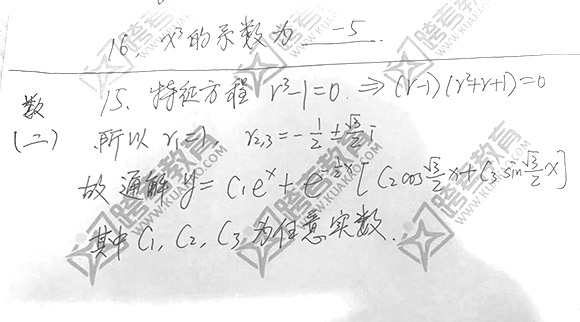 16. x³的系数为 -5
数 15. 特征方程 r³-1=0. ⇒ (r-1)(r²+r+1)=0
(二) 所以 r₁=1, r₂,₃=-1/2±√3/2 i
故通解 y=C₁eˣ+e^(-1/2x)[C₂cos√3/2x+C₃sin√3/2x]
其中C₁,C₂,C₃为任意实数.
跨考教育
WWW.KUAKAO.COM